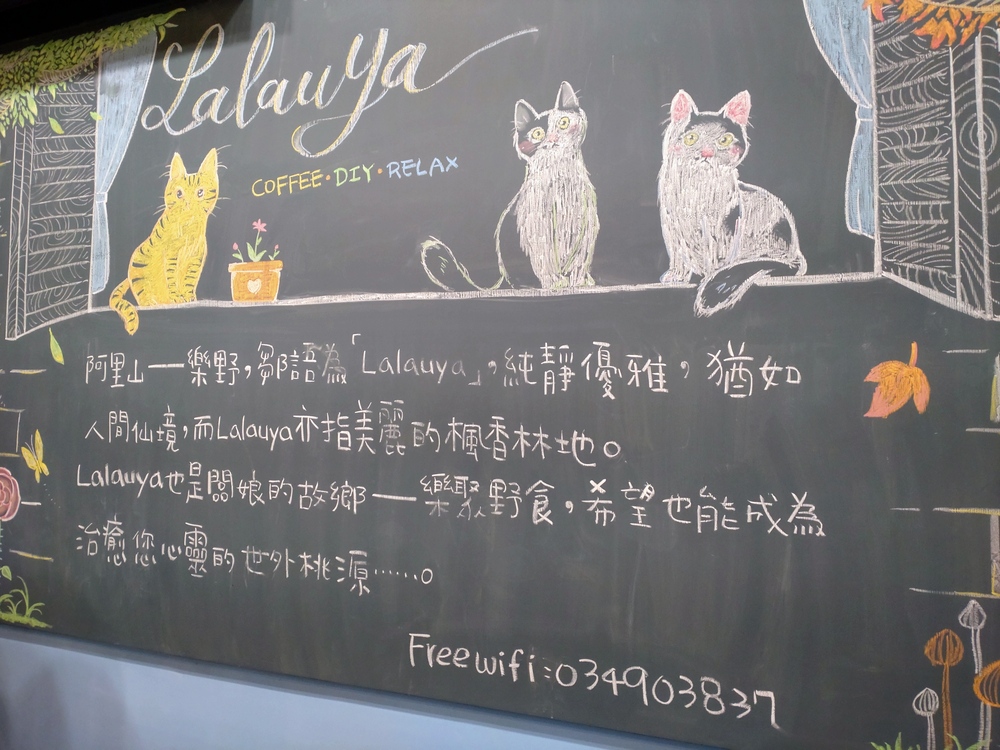 Lalauya
COFFEE·DIY·RELAX
阿里山—樂野，鄒語為「Lalauya」，純靜優雅，猶如
人間仙境，而Lalauya亦指美麗的楓香林地。
Lalauya也是闆娘的故鄉—樂聚野食，希望也能成為
治癒您心靈的世外桃源……。
Free wifi:034903837